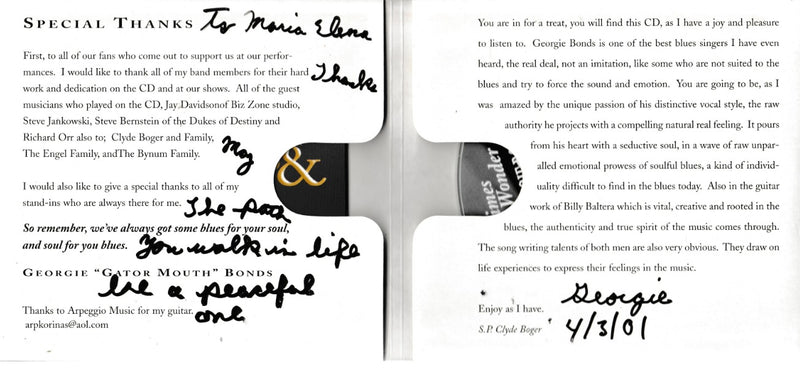 SPECIAL THANKS To Maria Elena
First, to all of our fans who come out to support us at our perfor-
mances. I would like to thank all of my band members for their hard
Thanks
work and dedication on the CD and at our shows. All of the guest
musicians who played on the CD, Jay.Davidsonof Biz Zone studio,
Steve Jankowski, Steve Bernstein of the Dukes of Destiny and
Richard Orr also to; Clyde Boger and Family,
The Engel Family, andThe Bynum Family.
May
I would also like to give a special thanks to all of my
stand-ins who are always there for me.
The path
So remember, we've always got some blues for your soul,
and soul for you blues.
You walk in life
GEORGIE "GATOR MOUTH" BONDS
be a peaceful
Thanks to Arpeggio Music for my guitar.
one
arpkorinas@aol.com
&
You are in for a treat, you will find this CD, as I have a joy and pleasure
to listen to. Georgie Bonds is one of the best blues singers I have even
heard, the real deal, not an imitation, like some who are not suited to the
blues and try to force the sound and emotion. You are going to be, as I
was amazed by the unique passion of his distinctive vocal style, the raw
authority he projects with a compelling natural real feeling. It pours
from his heart with a seductive soul, in a wave of raw unpar-
alled emotional prowess of soulful blues, a kind of individ-
uality difficult to find in the blues today. Also in the guitar
work of Billy Baltera which is vital, creative and rooted in the
blues, the authenticity and true spirit of the music comes through.
The song writing talents of both men are also very obvious. They draw on
life experiences to express their feelings in the music.
imes
Wonder
Enjoy as I have.
S.P. Clyde Boger
Georgie
4/3/01